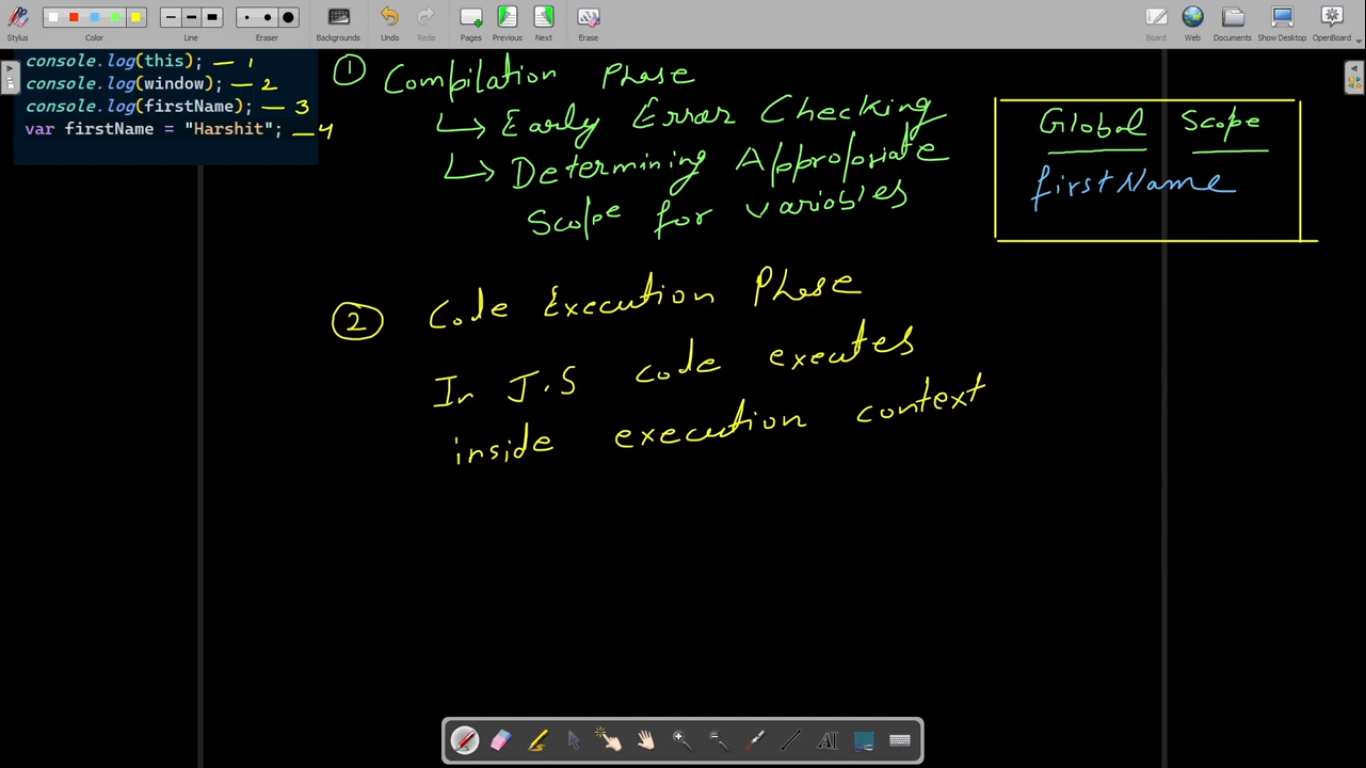 Stylus
Color
Line
Eraser
Backgrounds
Undo
Redo
Pages
Previous
Next
Erase
Board
Web
Documents
Show Desktop
OpenBoard
console.log(this); — 1
console.log(window); — 2
console.log(firstName); — 3
var firstName = "Harshit"; — 4
① Compilation Phase
↳ Early Error Checking
↳ Determining Appropriate
Scope for variables
Global Scope
firstName
② Code Execution Phase
In J.S code executes
inside execution context
AI